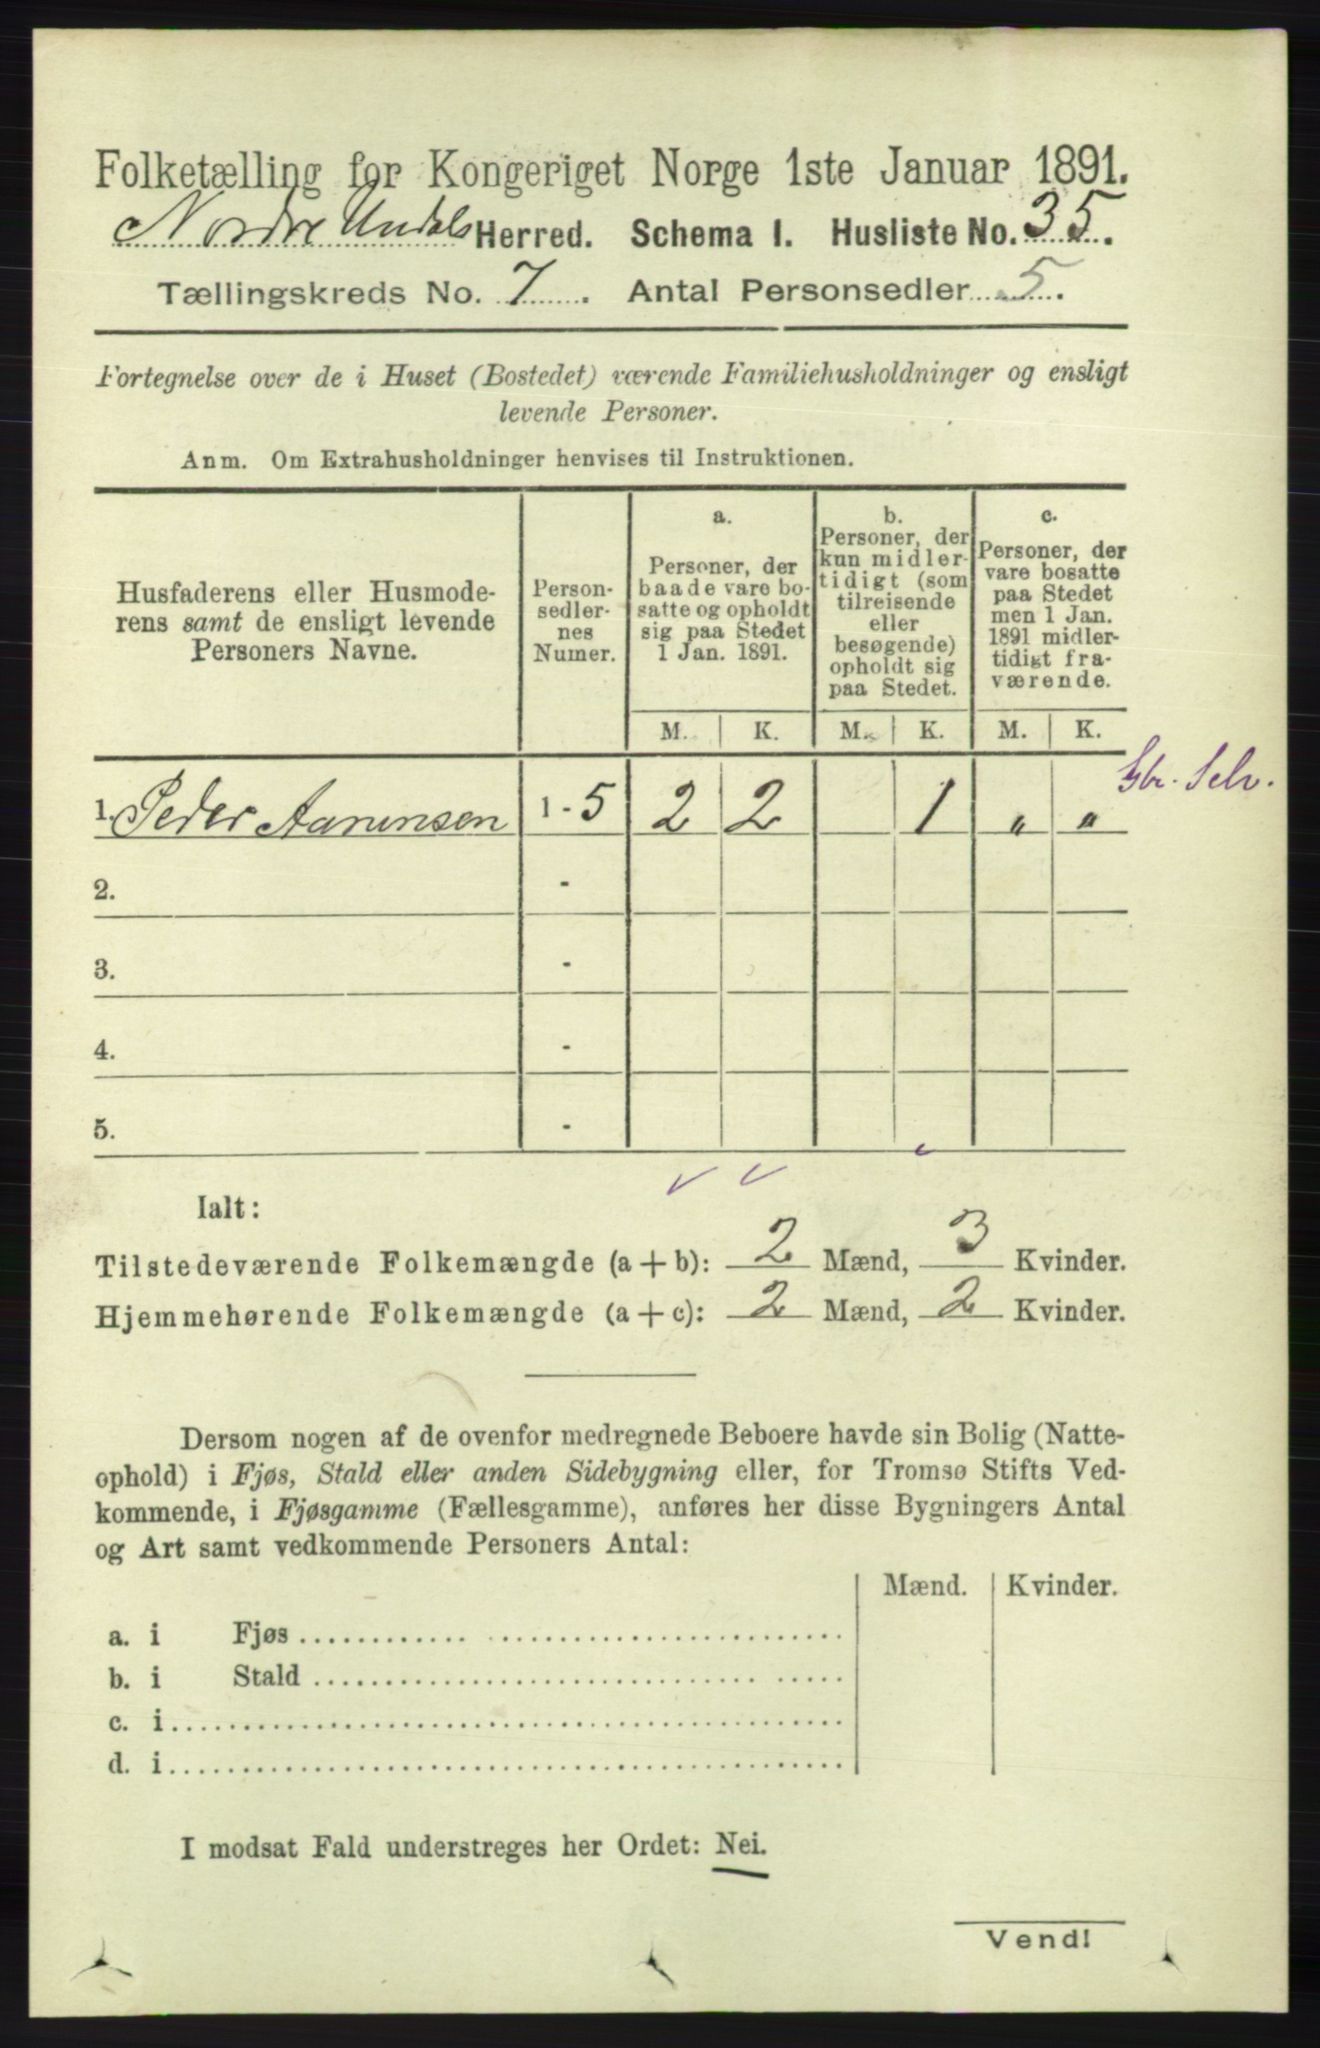 Folketælling for Kongeriget Norge 1ste Januar 1891.
Nordre Undals Herred. Schema I. Husliste No. 35.
Tællingskreds No. 7. Antal Personsedler 5.
Fortegnelse over de i Huset (Bostedet) værende Familiehusholdninger og ensligt
levende Personer.
Anm. Om Extrahusholdninger henvises til Instruktionen.
Husfaderens eller Husmode-
rens samt de ensligt levende
Personers Navne.
Person-
sedler-
nes
Numer.
a.
Personer, der
baade vare bo-
satte og opholdt
sig paa Stedet
1 Jan. 1891.
b.
Personer, der
kun midler-
tidigt (som
tilreisende
eller
besøgende)
opholdt sig
paa Stedet.
c.
Personer, der
vare bosatte
paa Stedet
men 1 Jan.
1891 midler-
tidigt fra-
værende.
M. K. M. K. M. K.
Gbr. Selv.
1. Peder Aanensen 1 - 5 2 2 1 " "
2. -
3. -
4. -
5. -
Ialt:
Tilstedeværende Folkemængde (a + b): 2 Mænd, 3 Kvinder.
Hjemmehørende Folkemængde (a + c): 2 Mænd, 2 Kvinder.
Dersom nogen af de ovenfor medregnede Beboere havde sin Bolig (Natte-
ophold) i Fjøs, Stald eller anden Sidebygning eller, for Tromsø Stifts Ved-
kommende, i Fjøsgamme (Fællesgamme), anføres her disse Bygningers Antal
og Art samt vedkommende Personers Antal:
Mænd. Kvinder.
a. i Fjøs
b. i Stald
c. i
d. i
I modsat Fald understreges her Ordet: Nei.
Vend!